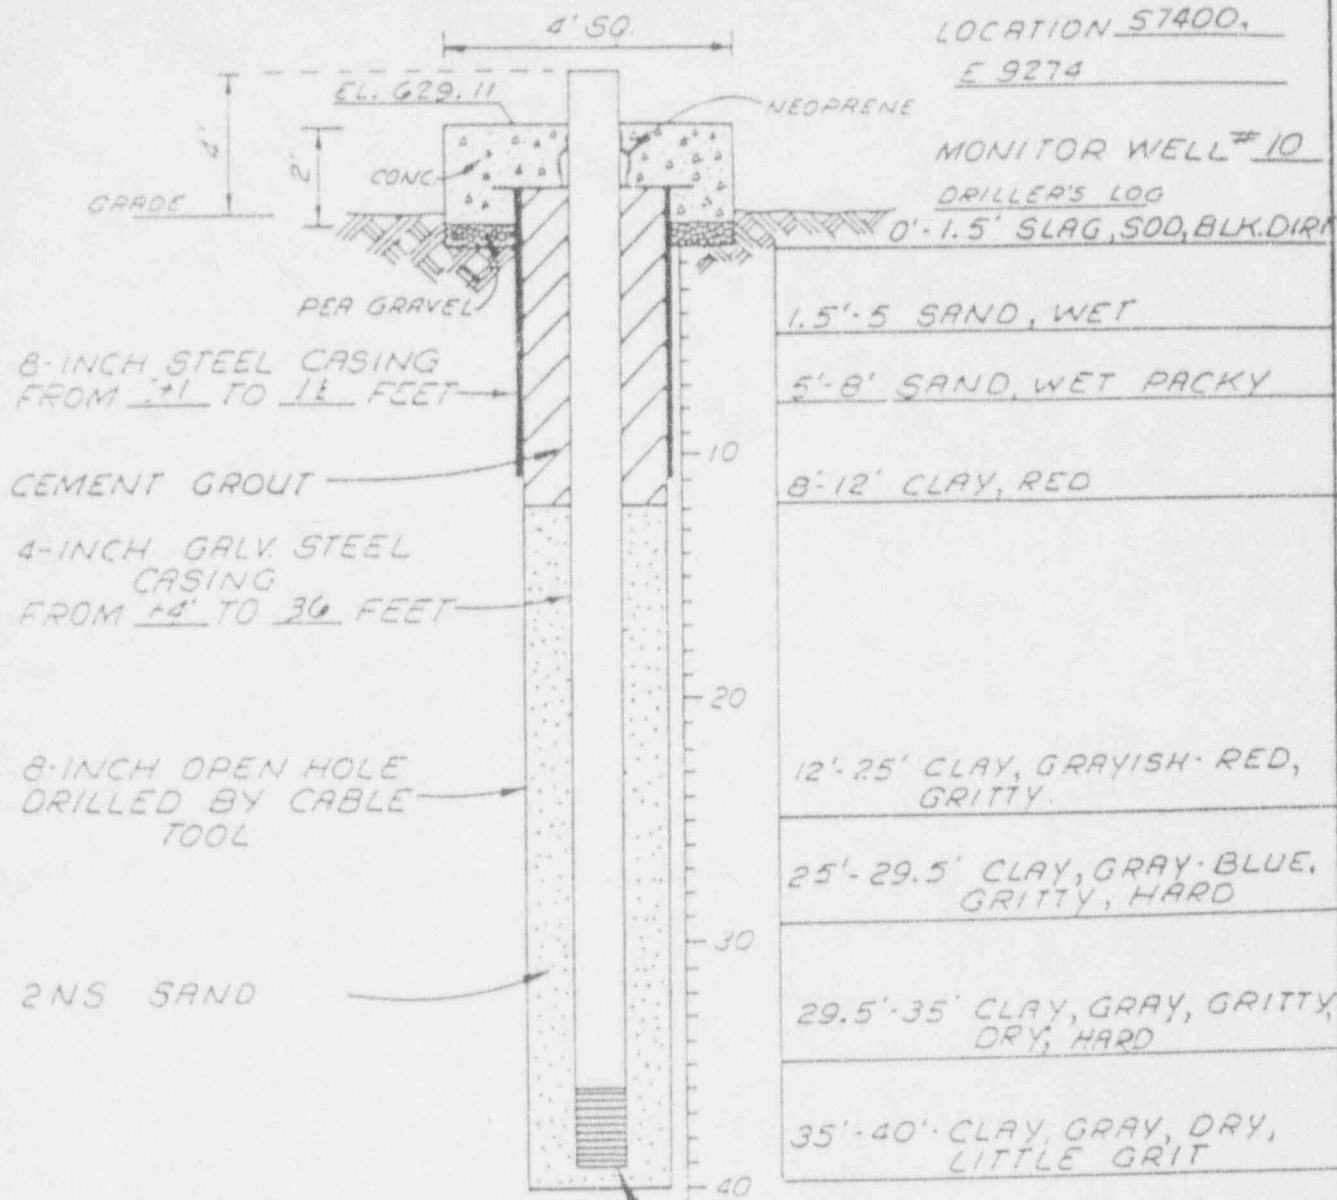 4' SQ.
LOCATION S7400,
E 9274
EL. 629.11
NEOPRENE
4'
2'
CONC.
MONITOR WELL #10
DRILLER'S LOG
GRADE
0'-1.5' SLAG, SOD, BLK. DIRT
PEA GRAVEL
1.5'-5 SAND, WET
8-INCH STEEL CASING
FROM TO FEET
5'-8' SAND, WET PACKY
10
CEMENT GROUT
8'-12' CLAY, RED
4-INCH GALV. STEEL
CASING
FROM +4' TO 36 FEET
20
8-INCH OPEN HOLE
DRILLED BY CABLE
TOOL
12'-25' CLAY, GRAYISH-RED,
GRITTY
25'-29.5' CLAY, GRAY-BLUE,
GRITTY, HARD
30
2NS SAND
29.5'-35' CLAY, GRAY, GRITTY,
DRY, HARD
35'-40' CLAY, GRAY, DRY,
LITTLE GRIT
40